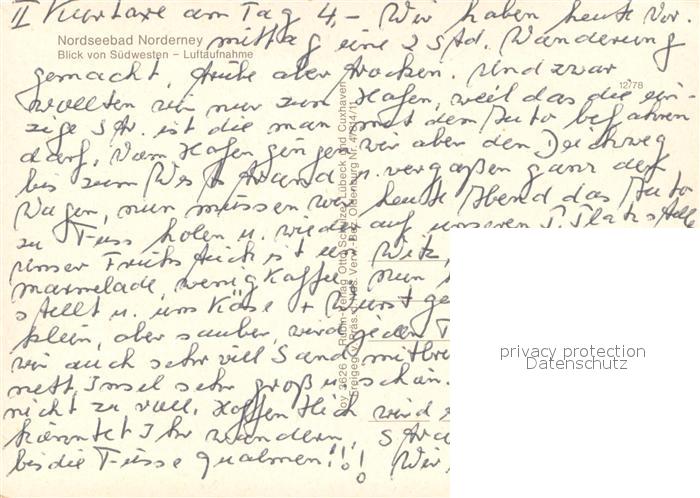 II Kurtaxe am Tag 4,- Wir haben heute Vor-
Nordseebad Norderney
Blick von Südwesten – Luftaufnahme
mittag eine 2 Std. Wanderung
gemacht, trübe aber trocken. Und zwar
12/78
wollten wir nur zum Hafen, weil das die ein-
zige Str. ist die man mit dem Auto befahren
darf, vom Hafen gingen wir aber den Deichweg
bis zum West Strand u. vergaßen ganz den
Wagen, nun müssen wir heute Abend das Auto
zu Fuss holen u. wieder auf unseren P. Platz stellen
Unser Frühstück ist ein Witz,
marmelade, wenig Kaffee, nun
stellt u. uns Käse + Wurst ge
klein, aber sauber, wird jeden T
wir auch sehr viel Sand mitbri
nett, Insel sehr groß u. schön.
nicht zu voll. Hoffentlich wird
könntet Ihr wandern, Stra
bis die Füsse qualmen!!! Wir
Ruhn-Verlag Otto Schulze, Lübeck und Cuxhaven
Freigeg. v. Präs. Nds. Verw.-Bez. Oldenburg Nr.
privacy protection
Datenschutz